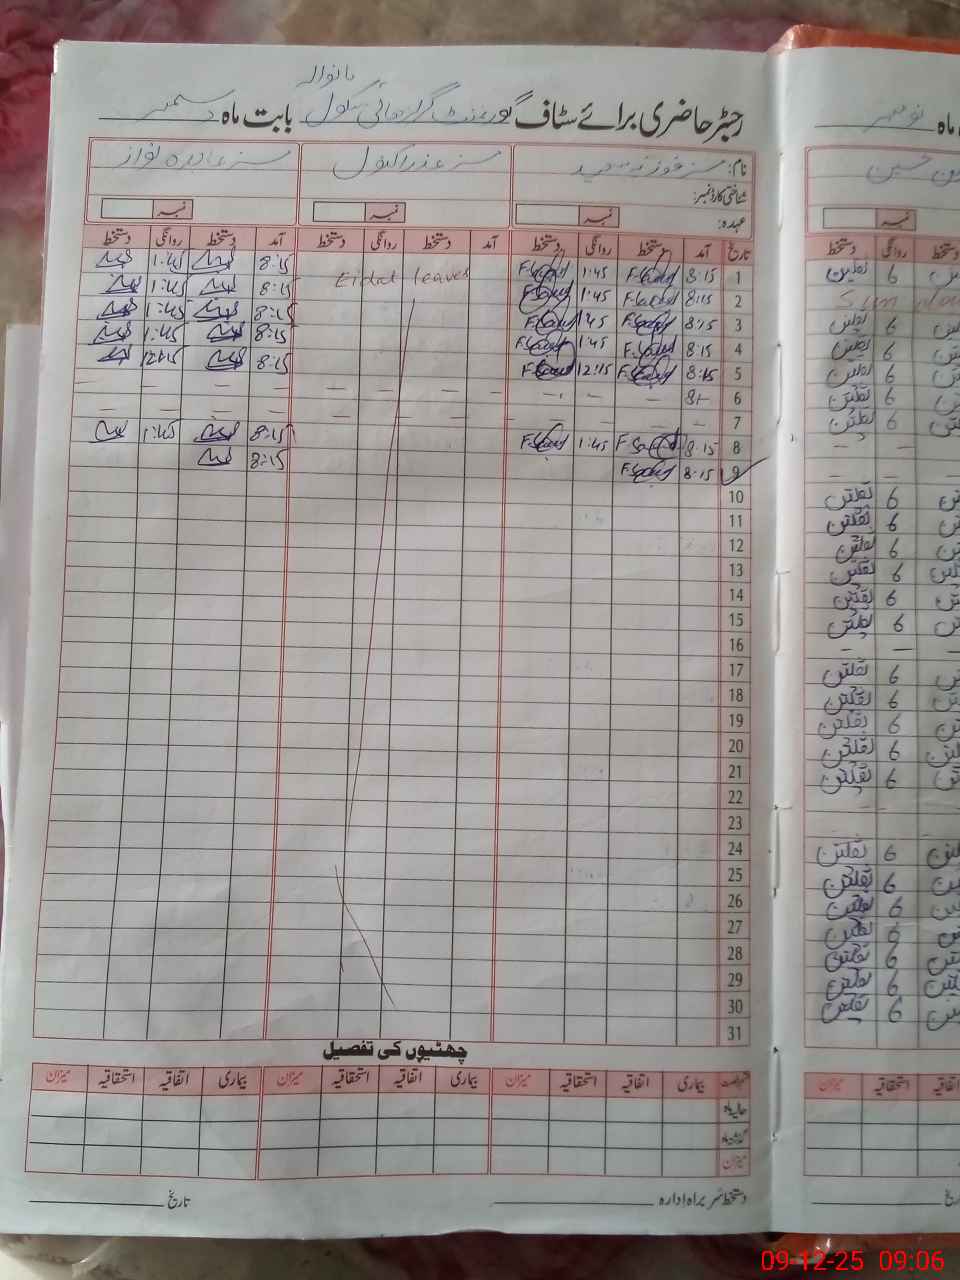 بانوالہ
رجسٹر حاضری برائے سٹاف گورنمنٹ گرلز ہائی سکول بابت ماہ دسمبر
نام: مسز فوزیہ سعید مسز عذرا بتول مسز عابدہ نواز
شناختی کارڈ نمبر:
عہدہ: نمبر نمبر نمبر
تاریخ آمد دستخط روانگی دستخط آمد دستخط روانگی دستخط آمد دستخط روانگی دستخط
1 8:15 F.Saeed 1:45 F.Saeed Eidat leaves 8:15 1:45
2 8:15 F.Saeed 1:45 F.Saeed 8:15 1:45
3 8:15 F.Saeed 1:45 F.Saeed 8:15 1:45
4 8:15 F.Saeed 1:45 F.Saeed 8:15 1:45
5 8:15 F.Saeed 12:15 F.Saeed 8:15 12:15
6 8 – – – – – – – – – –
7 – – – – – – – – –
8 8:15 F.Saeed 1:45 F.Saeed 8:15 1:45
9 8:15 F.Saeed 8:15
10
11
12
13
14
15
16
17
18
19
20
21
22
23
24
25
26
27
28
29
30
31
چھٹیوں کی تفصیل
بیماری اتفاقیہ استحقاقیہ میزان بیماری اتفاقیہ استحقاقیہ میزان بیماری اتفاقیہ استحقاقیہ میزان
حالیہ ماہ
گذشتہ ماہ
میزان
دستخط سربراہ ادارہ تاریخ
ماہ نومبر
نمبر
دستخط روانگی دستخط
6 ثقلین
Sun
6 ثقلین
6 ثقلین
6 ثقلین
6 ثقلین
6 ثقلین
– –
– –
6 ثقلین
6 ثقلین
6 ثقلین
6 ثقلین
6 ثقلین
6 ثقلین
– –
6 ثقلین
6 ثقلین
6 ثقلین
6 ثقلین
6 ثقلین
6 ثقلین
6 ثقلین
6 ثقلین
6 ثقلین
6 ثقلین
6 ثقلین
6 ثقلین
استحقاقیہ میزان
تاریخ
09-12-25 09:06